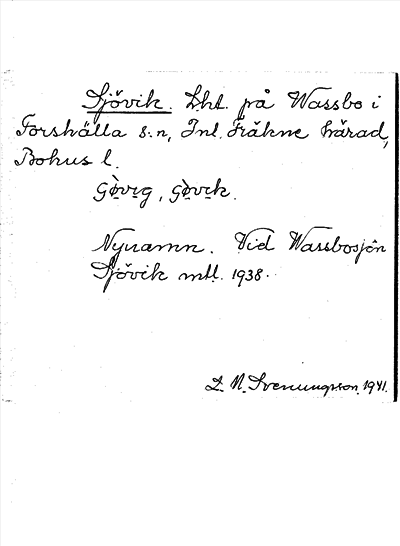 Sjövik. Lht. på Wassbo i
Forshälla s:n, Inl. Fräkne härad,
Bohus l.
Nynamn. Vid Wassbosjön
Sjövik mtl. 1938.
L. N. Svenungsson 1941.